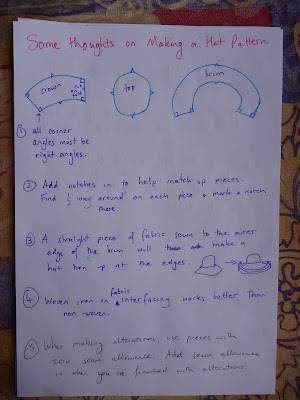 Some thoughts on Making a Hat Pattern.
crown
top
brim
① all corner
angles must be
right angles.
② Add notches in to help match up pieces.
Find ½ way around on each piece & mark a notch
there.
③ A straight piece of fabric sewn to the outer
edge of the brim will make a
hat turn up at the edges.
④ Woven iron-on fabric interfacing works better than
non woven.
⑤ When making alterations, use pieces with
zero seam allowance. Add seam allowance
in when you are finished with alterations.